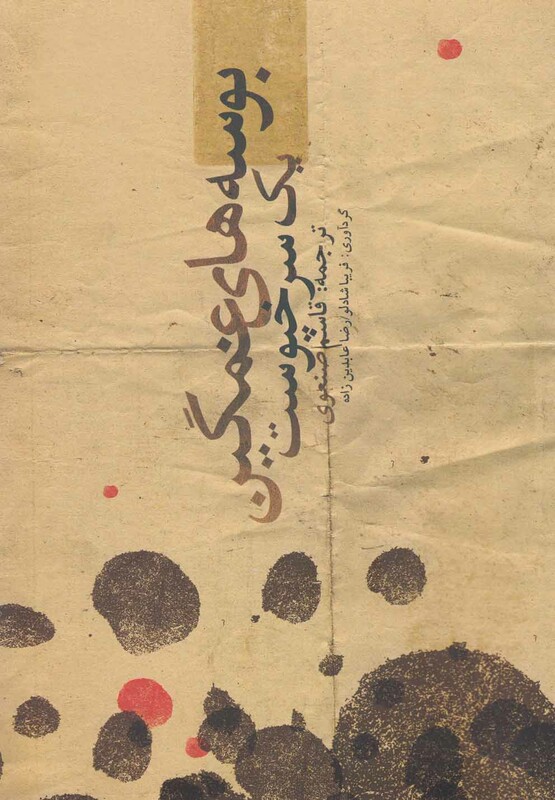 بوسه‌های غمگین
یک سرخپوست
ترجمه: قاسم صنعوی
گردآوری: فریبا شادلو/رضا عابدین زاده